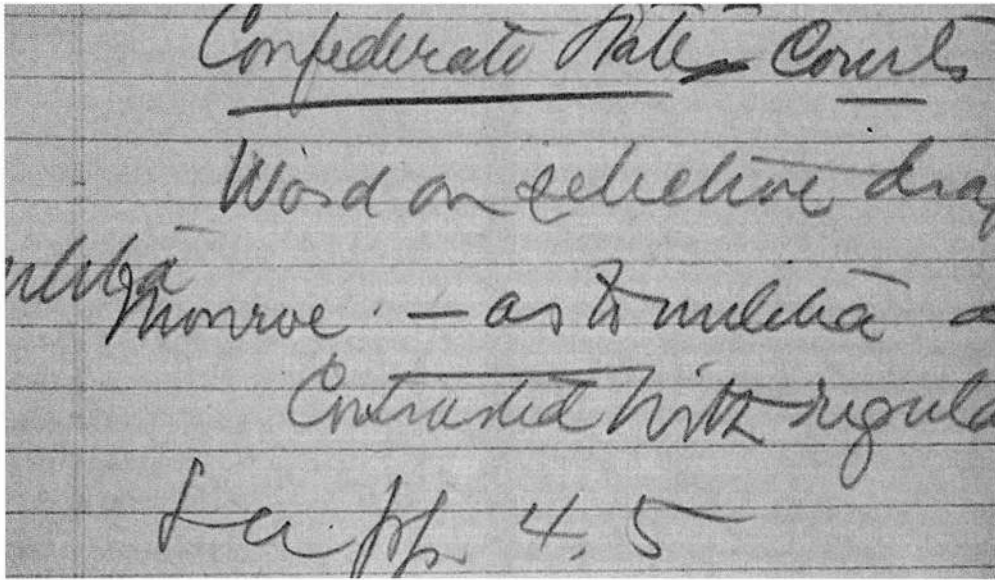 Confederate States Courts
Word on selective dra
militia
Monroe. — as to militia a
Contrasted with regula
See pp. 4, 5